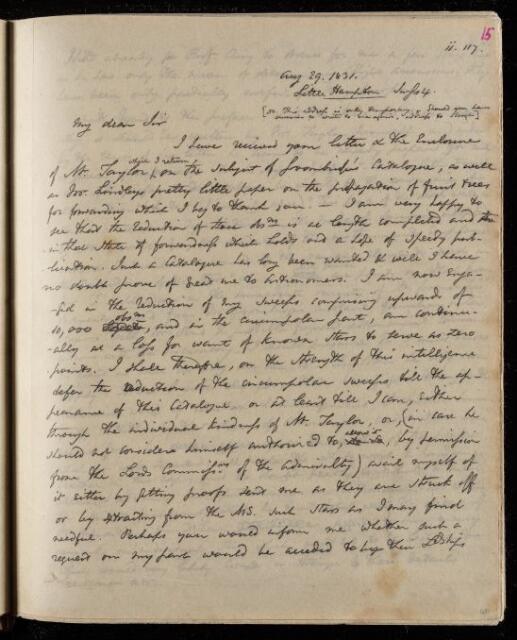 15
ii. 117.
Aug 29. 1831.
Little Hampton Sussex.
[This address is only temporary, should you have
occasion to write to me again, address to Slough]
My dear Sir
I have received your letter & the Enclosure
of Mr. Taylor, which I return, on the subject of Groombridge's Catalogue, as well
as Dr. Lindley's pretty little paper on the propagation of fruit trees
for forwarding which I beg to thank you. — I am very happy to
see that the reduction of these obsns is at length completed and the
in that State of forwardness which holds out a hope of speedy pub-
-lication. Such a Catalogue has long been wanted & will I have
no doubt prove of great use to Astronomers. I am now enga-
-ged in the reduction of my Sweeps comprising upwards of
10,000 obsns, and in the circumpolar part, am continu-
-ally at a loss for want of Known Stars to serve as zero
points. I shall therefore, on the strength of this intelligence
defer the reduction of the circumpolar sweeps till the ap-
pearance of this Catalogue or at least till I can, either
through the individual kindness of Mr. Taylor, or, (in case he
should not consider himself authorized to, by permission
from the Lords Commissrs of the Admiralty) avail myself of
it either by getting proofs sent me as they are struck off
or by extracting from the MS. such Stars as I may find
needful. Perhaps you would inform me whether such a
request on my part would be acceded to by their Ldships